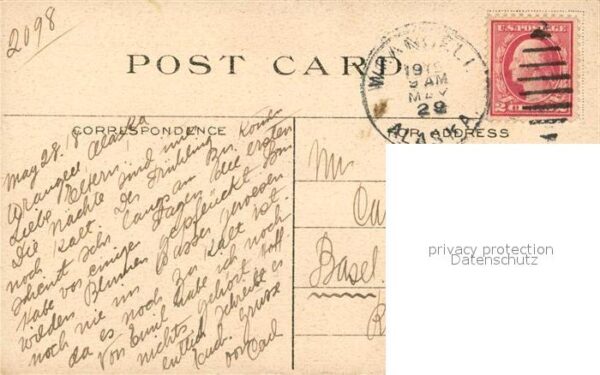 2098
POST CARD
WRANGELL
1918
9 AM
MAY
29
ALASKA
U.S. POSTAGE
2
CORRESPONDENCE
FOR ADDRESS
May 28. 18
Wrangell Alaska
Liebe Eltern!
Die Nächte sind immer
noch kalt. Der Frühling
scheint sehr langsam zu kommen.
Habe vor einigen Tagen die ersten
wilden Blumen gepflückt. Bin
noch nie im Wasser gewesen
da es noch zu kalt ist.
Von Emil habe ich noch
nichts gehört. Hoff
entlich schreibe es
euch. Grüsse
von Carl
Mr
Ca
Basel.
privacy protection
Datenschutz